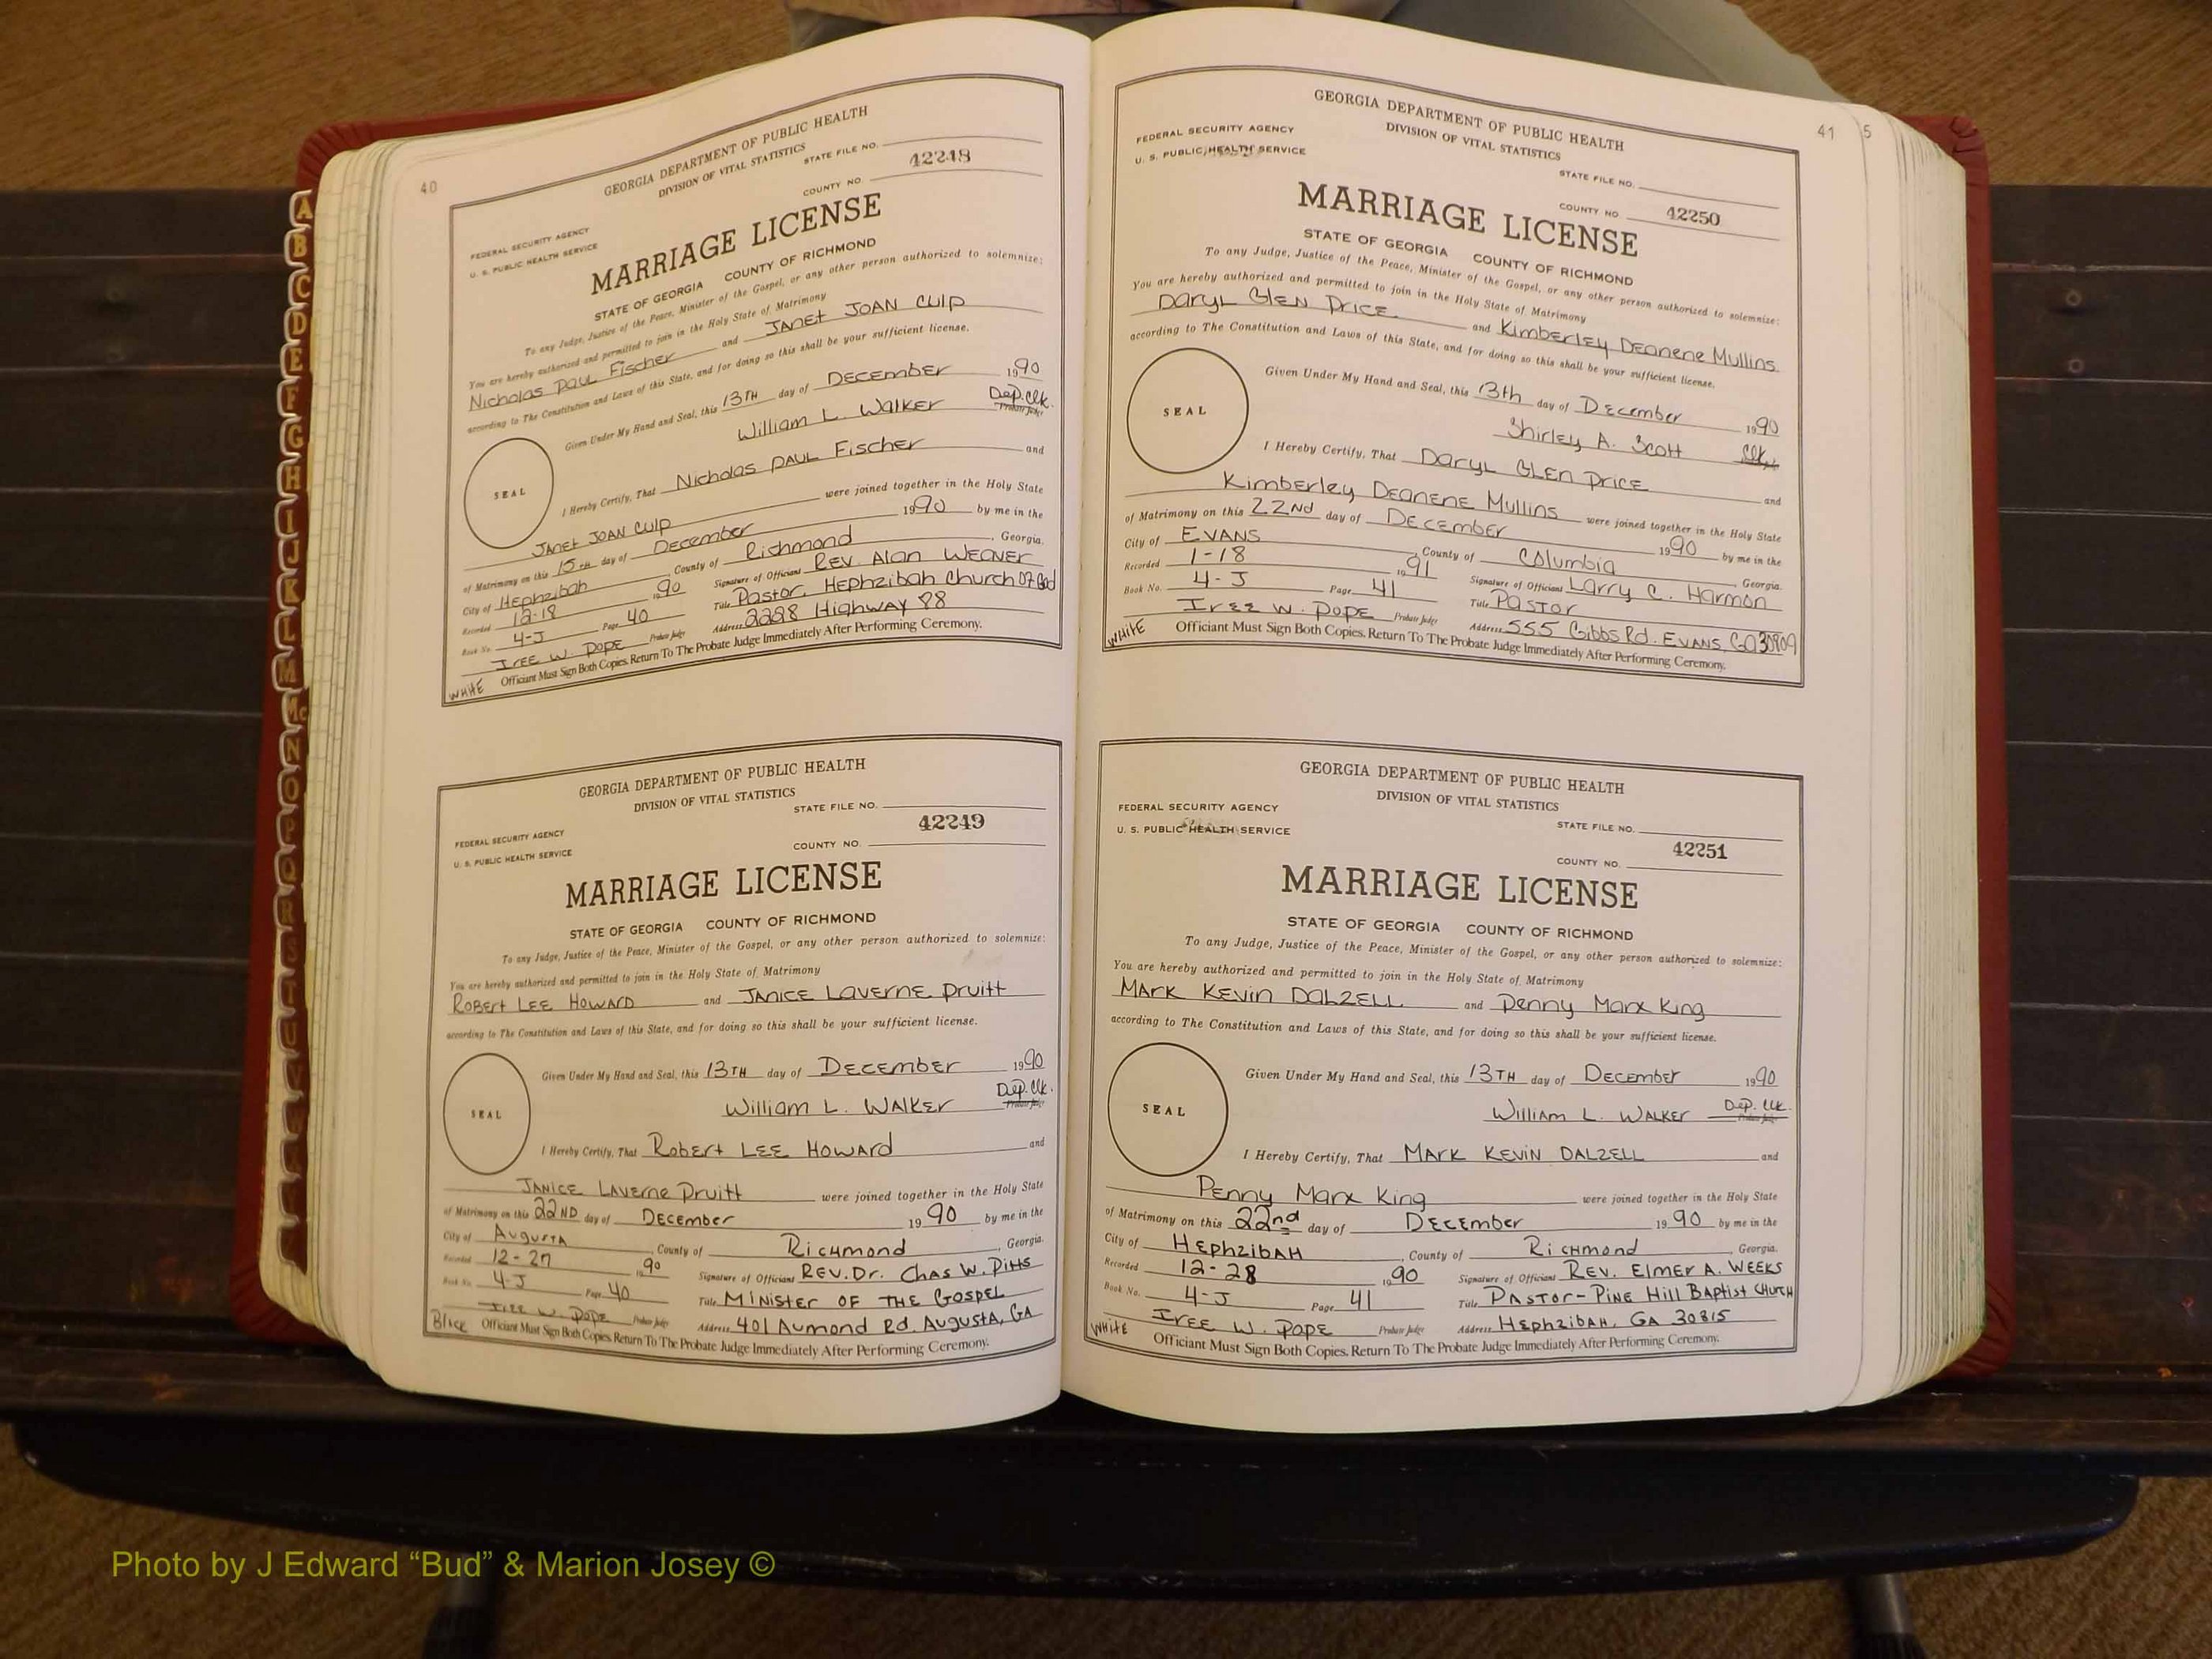 40
GEORGIA DEPARTMENT OF PUBLIC HEALTH
DIVISION OF VITAL STATISTICS
STATE FILE NO.
FEDERAL SECURITY AGENCY
U. S. PUBLIC HEALTH SERVICE
COUNTY NO. 42248
MARRIAGE LICENSE
STATE OF GEORGIA COUNTY OF RICHMOND
To any Judge, Justice of the Peace, Minister of the Gospel, or any other person authorized to solemnize:
You are hereby authorized and permitted to join in the Holy State of Matrimony
Nicholas Paul Fischer and Janet Joan Culp
according to The Constitution and Laws of this State, and for doing so this shall be your sufficient license.
Given Under My Hand and Seal, this 13TH day of December 1990
William L. Walker Dep. Clk. Probate Judge
SEAL
I Hereby Certify, That Nicholas Paul Fischer and
Janet Joan Culp were joined together in the Holy State
of Matrimony on this 15th day of December 1990 by me in the
City of Hephzibah County of Richmond, Georgia.
Recorded 12-18 1990 Signature of Officiant Rev. Alan Weaver
Book No. 4-J Page 40 Title Pastor, Hephzibah Church of God
Iree W. Pope Probate Judge Address 2228 Highway 88
WHITE Officiant Must Sign Both Copies. Return To The Probate Judge Immediately After Performing Ceremony.
GEORGIA DEPARTMENT OF PUBLIC HEALTH
DIVISION OF VITAL STATISTICS
STATE FILE NO.
FEDERAL SECURITY AGENCY
U. S. PUBLIC HEALTH SERVICE
COUNTY NO. 42249
MARRIAGE LICENSE
STATE OF GEORGIA COUNTY OF RICHMOND
To any Judge, Justice of the Peace, Minister of the Gospel, or any other person authorized to solemnize:
You are hereby authorized and permitted to join in the Holy State of Matrimony
Robert Lee Howard and Janice Laverne Pruitt
according to The Constitution and Laws of this State, and for doing so this shall be your sufficient license.
Given Under My Hand and Seal, this 13TH day of December 1990
William L. Walker Dep. Clk. Probate Judge
SEAL
I Hereby Certify, That Robert Lee Howard and
Janice Laverne Pruitt were joined together in the Holy State
of Matrimony on this 22ND day of December 1990 by me in the
City of Augusta, County of Richmond, Georgia.
Recorded 12-27 1990 Signature of Officiant Rev. Dr. Chas W. Pitts
Book No. 4-J Page 40 Title Minister of the Gospel
Iree W. Pope Probate Judge Address 401 Aumond Rd. Augusta, GA
Black Officiant Must Sign Both Copies. Return To The Probate Judge Immediately After Performing Ceremony.
41 5
GEORGIA DEPARTMENT OF PUBLIC HEALTH
DIVISION OF VITAL STATISTICS
FEDERAL SECURITY AGENCY
U. S. PUBLIC HEALTH SERVICE
STATE FILE NO.
COUNTY NO. 42250
MARRIAGE LICENSE
STATE OF GEORGIA COUNTY OF RICHMOND
To any Judge, Justice of the Peace, Minister of the Gospel, or any other person authorized to solemnize:
You are hereby authorized and permitted to join in the Holy State of Matrimony
Daryl Glen Price and Kimberley Deanene Mullins
according to The Constitution and Laws of this State, and for doing so this shall be your sufficient license.
Given Under My Hand and Seal, this 13th day of December 1990
Shirley A. Scott Clk.
SEAL
I Hereby Certify, That Daryl Glen Price and
Kimberley Deanene Mullins were joined together in the Holy State
of Matrimony on this 22nd day of December 1990 by me in the
City of Evans, County of Columbia, Georgia.
Recorded 1-18 1991 Signature of Officiant Larry C. Harmon
Book No. 4-J Page 41 Title Pastor
Iree W. Pope Probate Judge Address 555 Gibbs Rd. Evans, GA 30809
White Officiant Must Sign Both Copies. Return To The Probate Judge Immediately After Performing Ceremony.
GEORGIA DEPARTMENT OF PUBLIC HEALTH
DIVISION OF VITAL STATISTICS
FEDERAL SECURITY AGENCY
U. S. PUBLIC HEALTH SERVICE
STATE FILE NO.
COUNTY NO. 42251
MARRIAGE LICENSE
STATE OF GEORGIA COUNTY OF RICHMOND
To any Judge, Justice of the Peace, Minister of the Gospel, or any other person authorized to solemnize:
You are hereby authorized and permitted to join in the Holy State of Matrimony
Mark Kevin Dalzell and Penny Marx King
according to The Constitution and Laws of this State, and for doing so this shall be your sufficient license.
Given Under My Hand and Seal, this 13TH day of December 1990
William L. Walker Dep. Clk. Probate Judge
SEAL
I Hereby Certify, That Mark Kevin Dalzell and
Penny Marx King were joined together in the Holy State
of Matrimony on this 22nd day of December 1990 by me in the
City of Hephzibah, County of Richmond, Georgia.
Recorded 12-28 1990 Signature of Officiant Rev. Elmer A. Weeks
Book No. 4-J Page 41 Title Pastor-Pine Hill Baptist Church
Iree W. Pope Probate Judge Address Hephzibah, GA 30815
White Officiant Must Sign Both Copies. Return To The Probate Judge Immediately After Performing Ceremony.
A
B
C
D
E
F
G
H
I
J
K
L
M
Mc
N
O
P
Q
R
Photo by J Edward “Bud” & Marion Josey ©